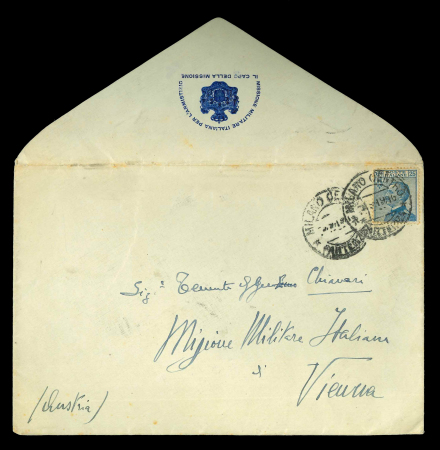 MISSIONE MILITARE ITALIANA PER L'ARMISTIZIO
IL CAPO DELLA MISSIONE
MILANO CENTRO
MILANO
PARTENZA
Sig. Tenente Chiavari
Missione Militare Italiana
di
Vienna
(Austria)